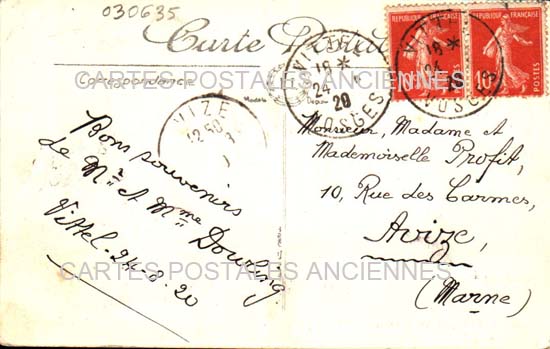 030635
Carte Postale
Correspondance
RÉPUBLIQUE FRANÇAISE
RÉPUBLIQUE FRANÇAISE
10
10
18 *
24
20
VOSGES
18 *
24
VOSGES
12 50
CARTES POSTALES ANCIENNES
Bons souvenirs
de Mr et Mme Dowling
Vittel - 24-8-20
Monsieur, Madame et
Mademoiselle Profit,
10, Rue des Carmes,
Avize,
(Marne)
CARTES POSTALES ANCIENNES